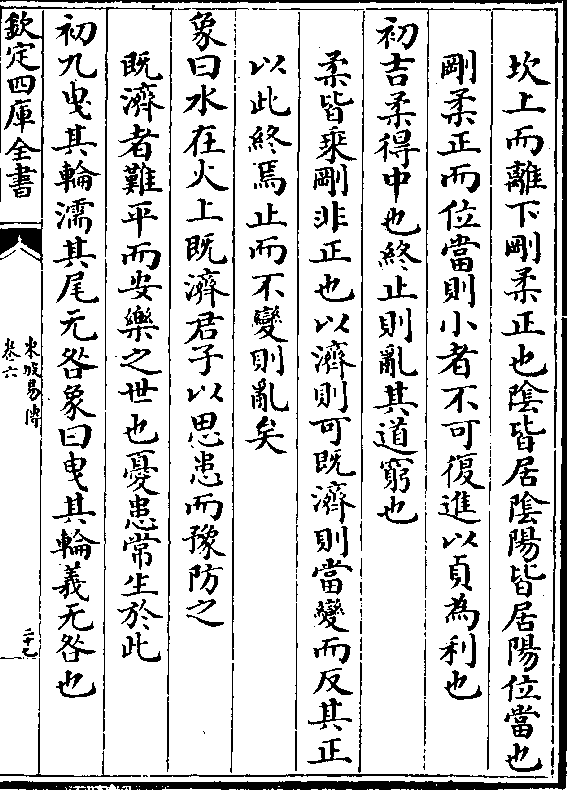 坎上而離下剛柔正也陰皆居陰陽皆居陽位當也
剛柔正而位當則小者不可復進以貞為利也
初吉柔得中也終止則亂其道窮也
柔皆乘剛非正也以濟則可既濟則當變而反其正
以此終焉止而不變則亂矣
象曰水在火上既濟君子以思患而豫防之
既濟者難平而安樂之世也憂患常生於此
初九曳其輪濡其尾无咎象曰曳其輪義无咎也
欽定四庫全書
東坡易傳
卷六